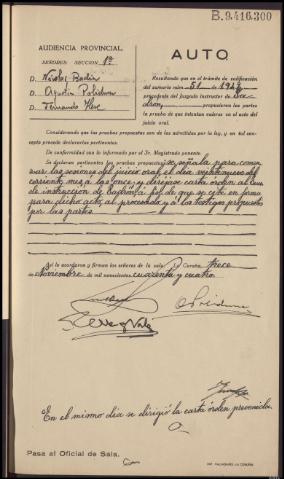 B.9.416.300
AUDIENCIA PROVINCIAL
SEÑORES: SECCIÓN 1ª
D. Nicolas
D. Agustin
D. Fernando
AUTO
Resultando que en el trámite de calificación
del sumario núm. 51 de 194
procedente del Juzgado Instructor de
propusieron las partes
la prueba de que intentan valerse en el acto del
juicio oral.
Considerando que las pruebas propuestas son de las admitidas por la ley, y en tal con-
cepto declararlas pertinentes.
De conformidad con lo informado por el Sr. Magistrado ponente.
Se declaran pertinentes las pruebas propuestas; se señala para comen-
zar las sesiones del juicio oral, el día veintinueve del
corriente mes, a las once; y diríjase carta orden al Juez
de instrucción de a fin de que se cite en forma
para dicho acto, al procesado y a los testigos propuestos
por las partes.
Así lo acordaron y firman los señores de la sala. Coruña, trece
de Noviembre de mil novecientos cuarenta y cuatro.
En el mismo día se dirigió la carta orden prevenida.
Pasa al Oficial de Sala.